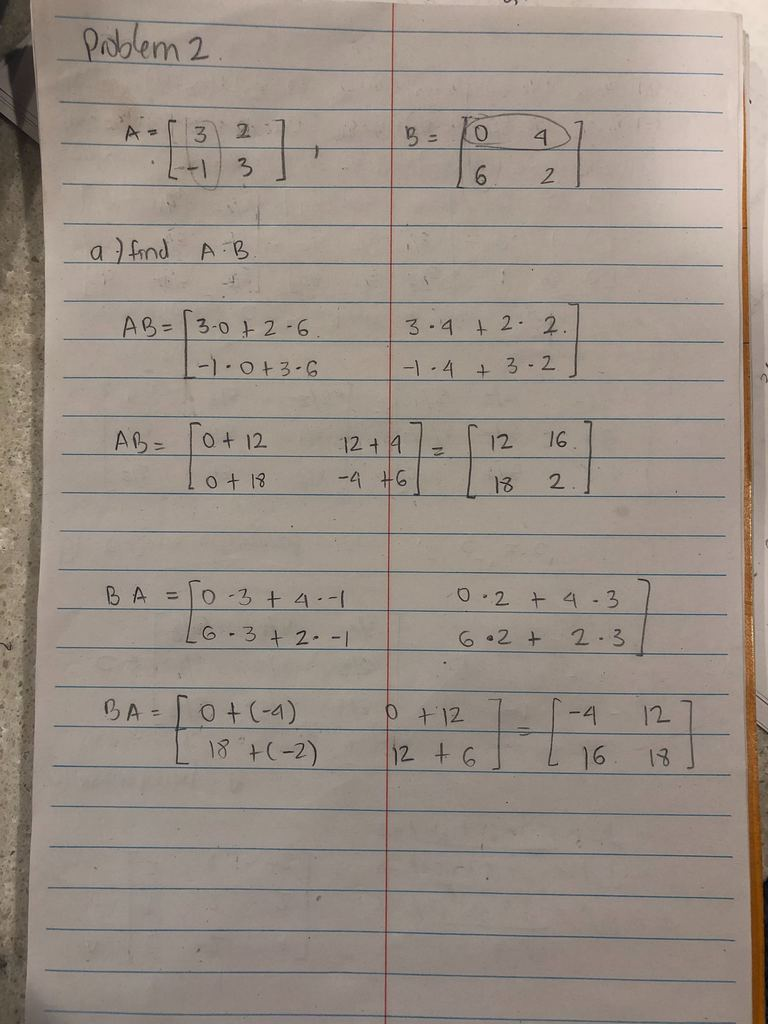 Problem 2.
A = [ 3 2 ] , B = [ 0 4 ]
[ -1 3 ] [ 6 2 ]
a) find A·B.
AB = [ 3·0 + 2·6 3·4 + 2·2. ]
[ -1·0+3·6 -1·4 + 3·2 ]
AB = [ 0 + 12 12 + 4 ] = [ 12 16 ]
[ 0 + 18 -4 +6 ] [ 18 2 ]
BA = [ 0·3 + 4·-1 0·2 + 4·3 ]
[ 6·3 + 2·-1 6·2 + 2·3 ]
BA = [ 0 + (-4) 0 + 12 ] = [ -4 12 ]
[ 18 +(-2) 12 + 6 ] [ 16 18 ]